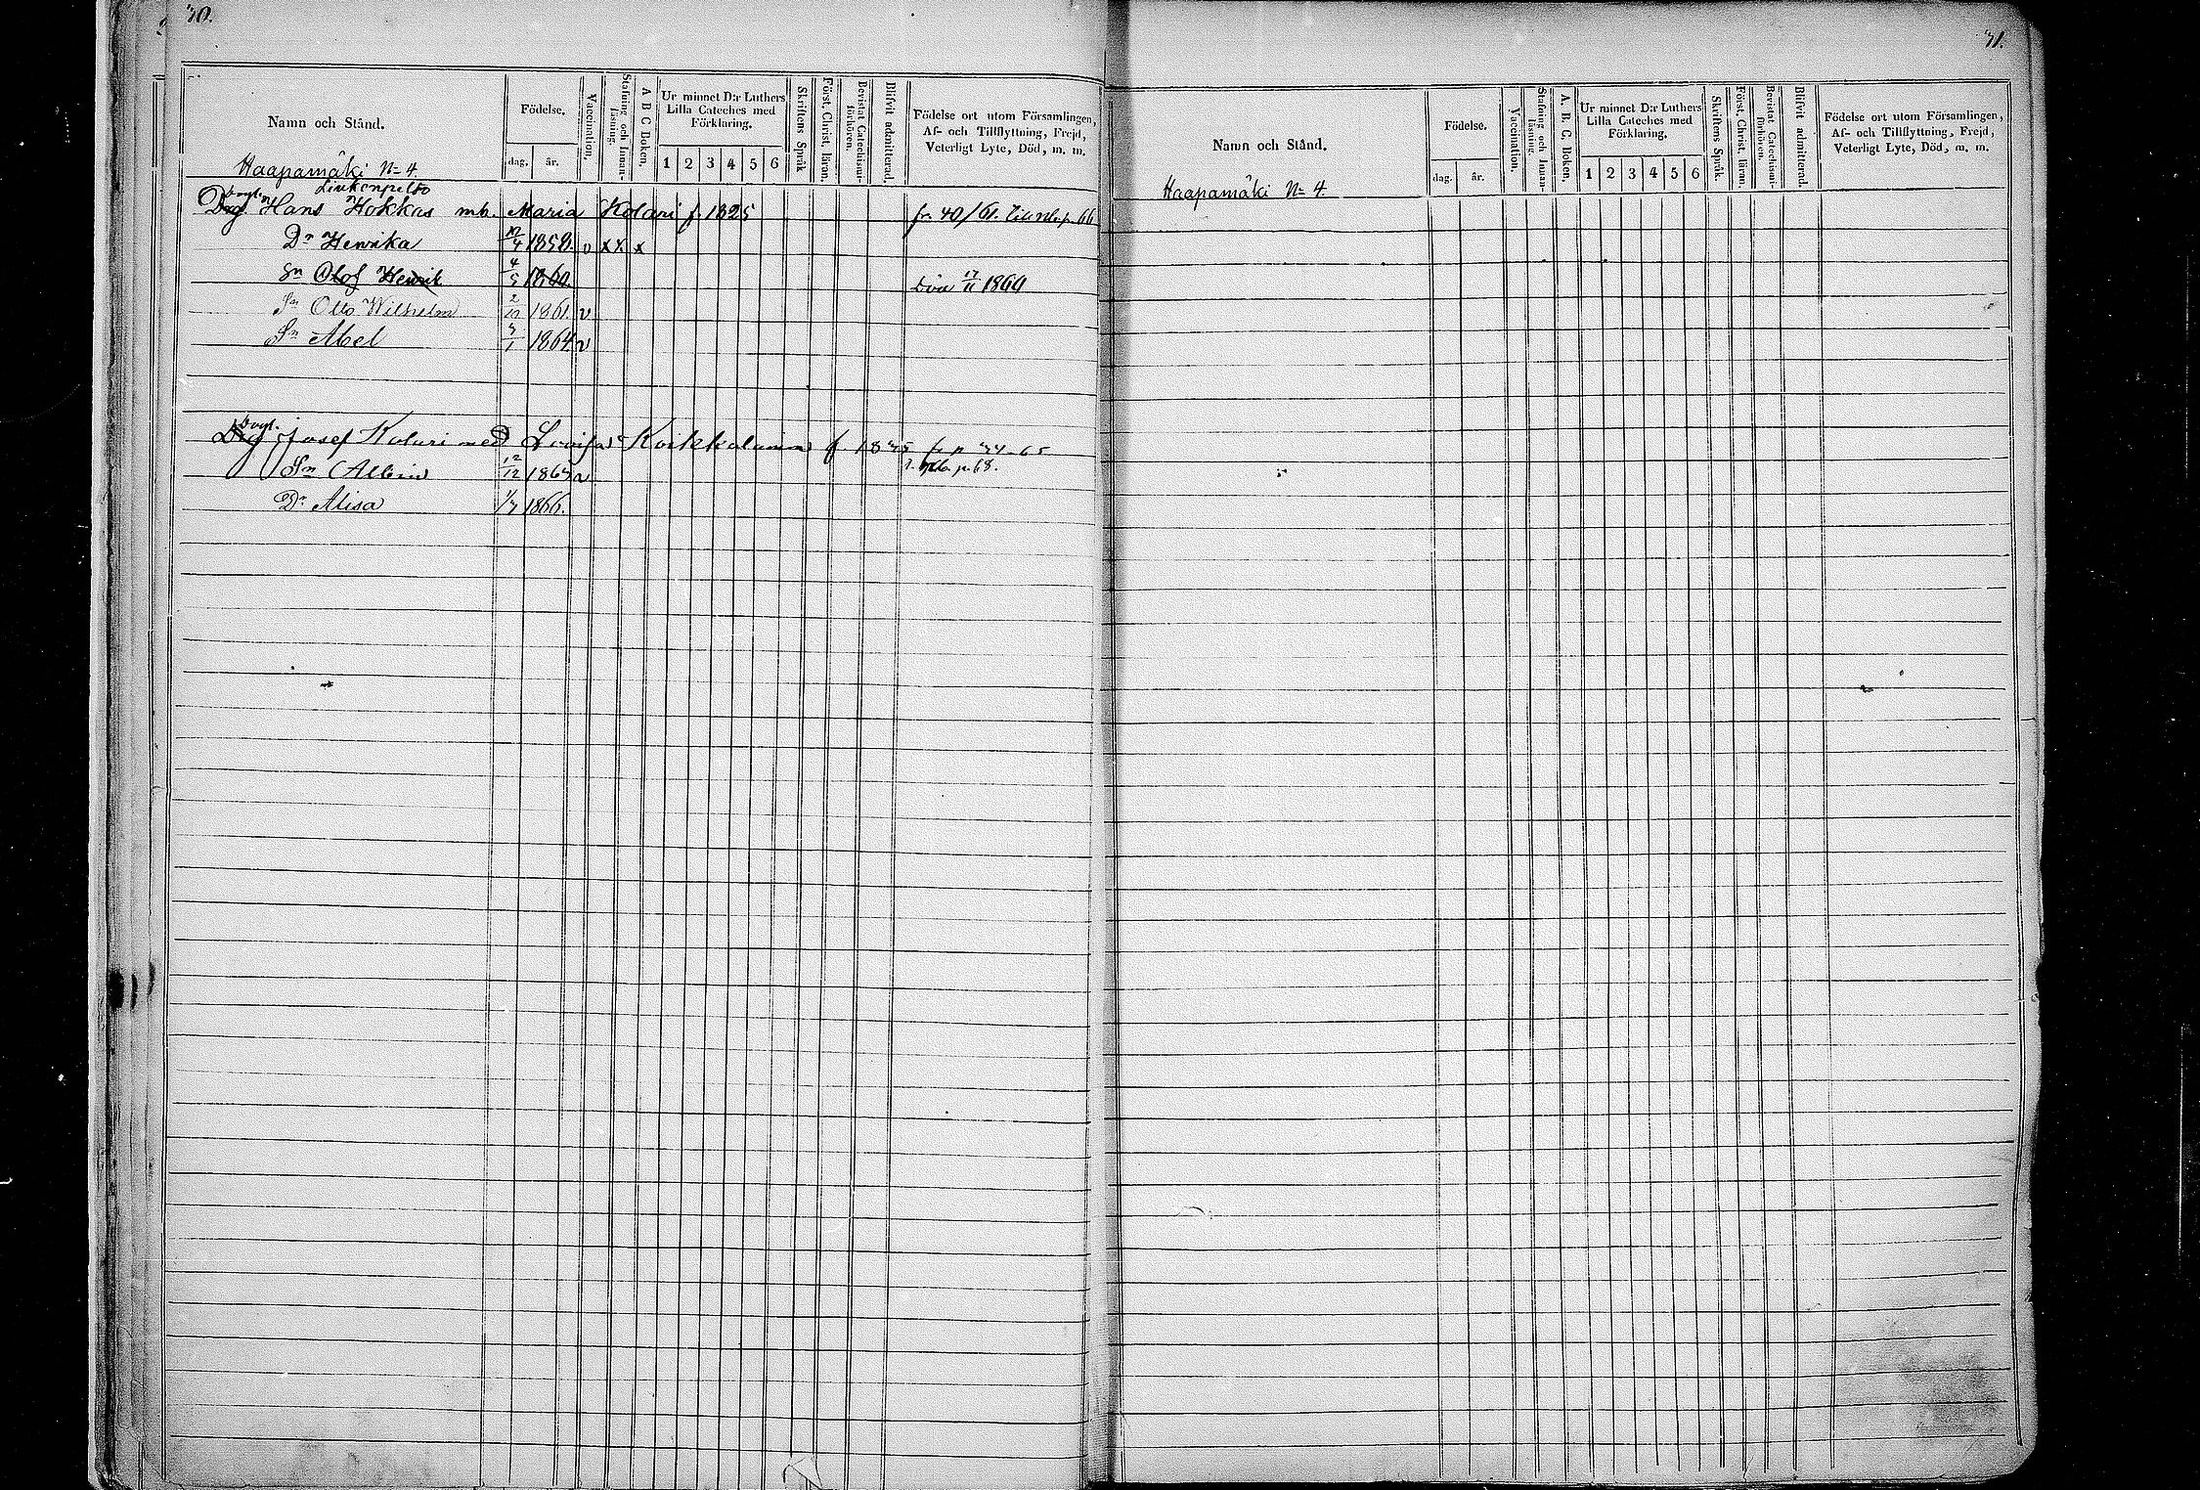 30.
Namn och Stånd.
Födelse.
dag. år.
Vaccination.
Stafning och Innanläsning.
A B C Boken.
Ur minnet D:r Luthers Lilla Cateches med Förklaring.
1 2 3 4 5 6
Skriftens Språk
Förståt. Christ. läran.
Bevistat Catechismiförhören.
Blifvit admitterad.
Födelse ort utom Församlingen, Af- och Tillflyttning, Frejd, Veterligt Lyte, Död, m. m.
Haapamäki No 4.
Hans Hokkas mb. Maria Kolari f. 1825 fr. 40/61.
Dr Henrika 1858. v x x x
Sn Olof Henrik 4/5 1860. Död 17/11 1860
Sn Otto Wilhelm 1861. v
Sn Abel 1864 v
Josef Kolari med Lovisa f.
Sn Albin 12/12 v
p. 68.
Dr Alisa 1866.
31.
Namn och Stånd.
Födelse.
dag. år.
Vaccination.
Stafning och Innanläsning.
A. B. C. Boken.
Ur minnet D:r Luthers Lilla Cateches med Förklaring.
1 2 3 4 5 6
Skriftens Språk.
Först. Christ. lärm.
Bevistat Catechismiförhören.
Blifvit admitterad.
Födelse ort utom Församlingen, Af- och Tillflyttning, Frejd, Veterligt Lyte, Död, m. m.
Haapamäki No 4.